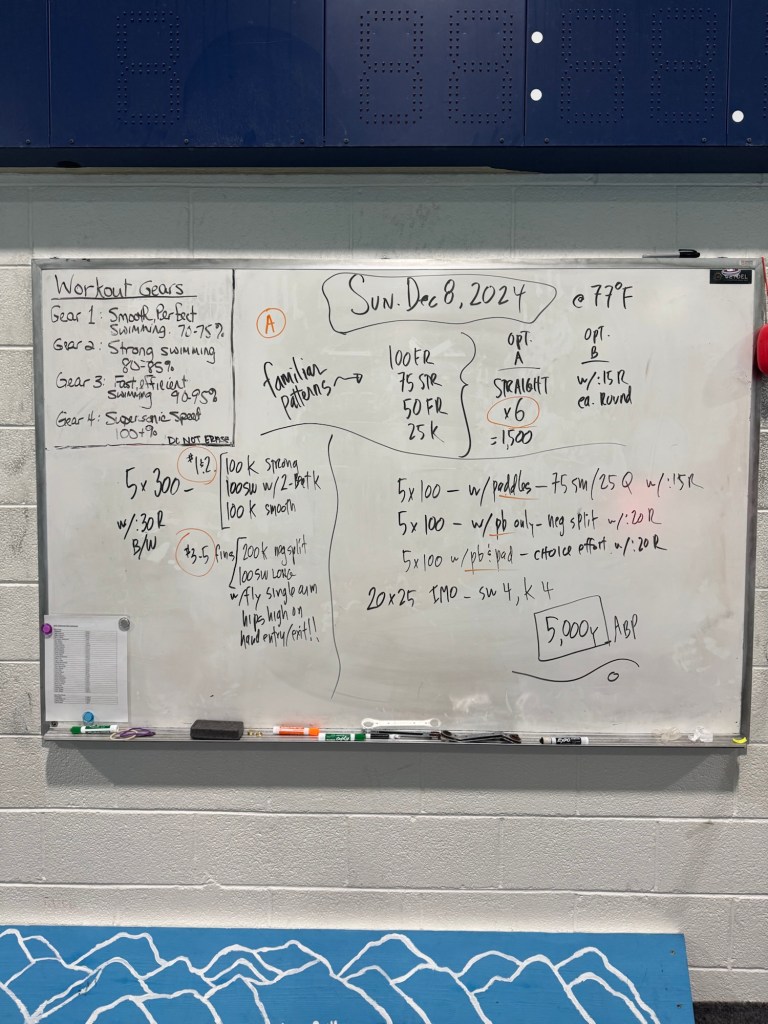 Workout Gears
Gear 1: Smooth, Perfect
Swimming. 70-75%
Gear 2: Strong swimming
80-85%
Gear 3: Fast, efficient
Swimming 90-95%
Gear 4: Supersonic Speed
100+%
DO NOT ERASE
SUN. Dec 8, 2024
@ 77°F
A
familiar
patterns
100 FR
75 STR
50 FR
25 K
OPT.
A
STRAIGHT
x6
=1,500
OPT.
B
w/:15 R
ea. Round
5 x 300 -
w/:30 R
B/W
#1&2
100 K strong
100 SW w/ 2-Beat K
100 K smooth
#3-5 fins
200 K neg split
100 SW LONG
w/ fly single arm
hips high on
hand entry/exit!!
5 x 100 - w/ paddles - 75 sm/25 Q w/:15 R
5 x 100 - w/ pb only - neg split w/:20 R
5 x 100 w/ pb & pad - choice effort w/:20 R
20 x 25 IMO - sw 4, k 4
5,000y ABP